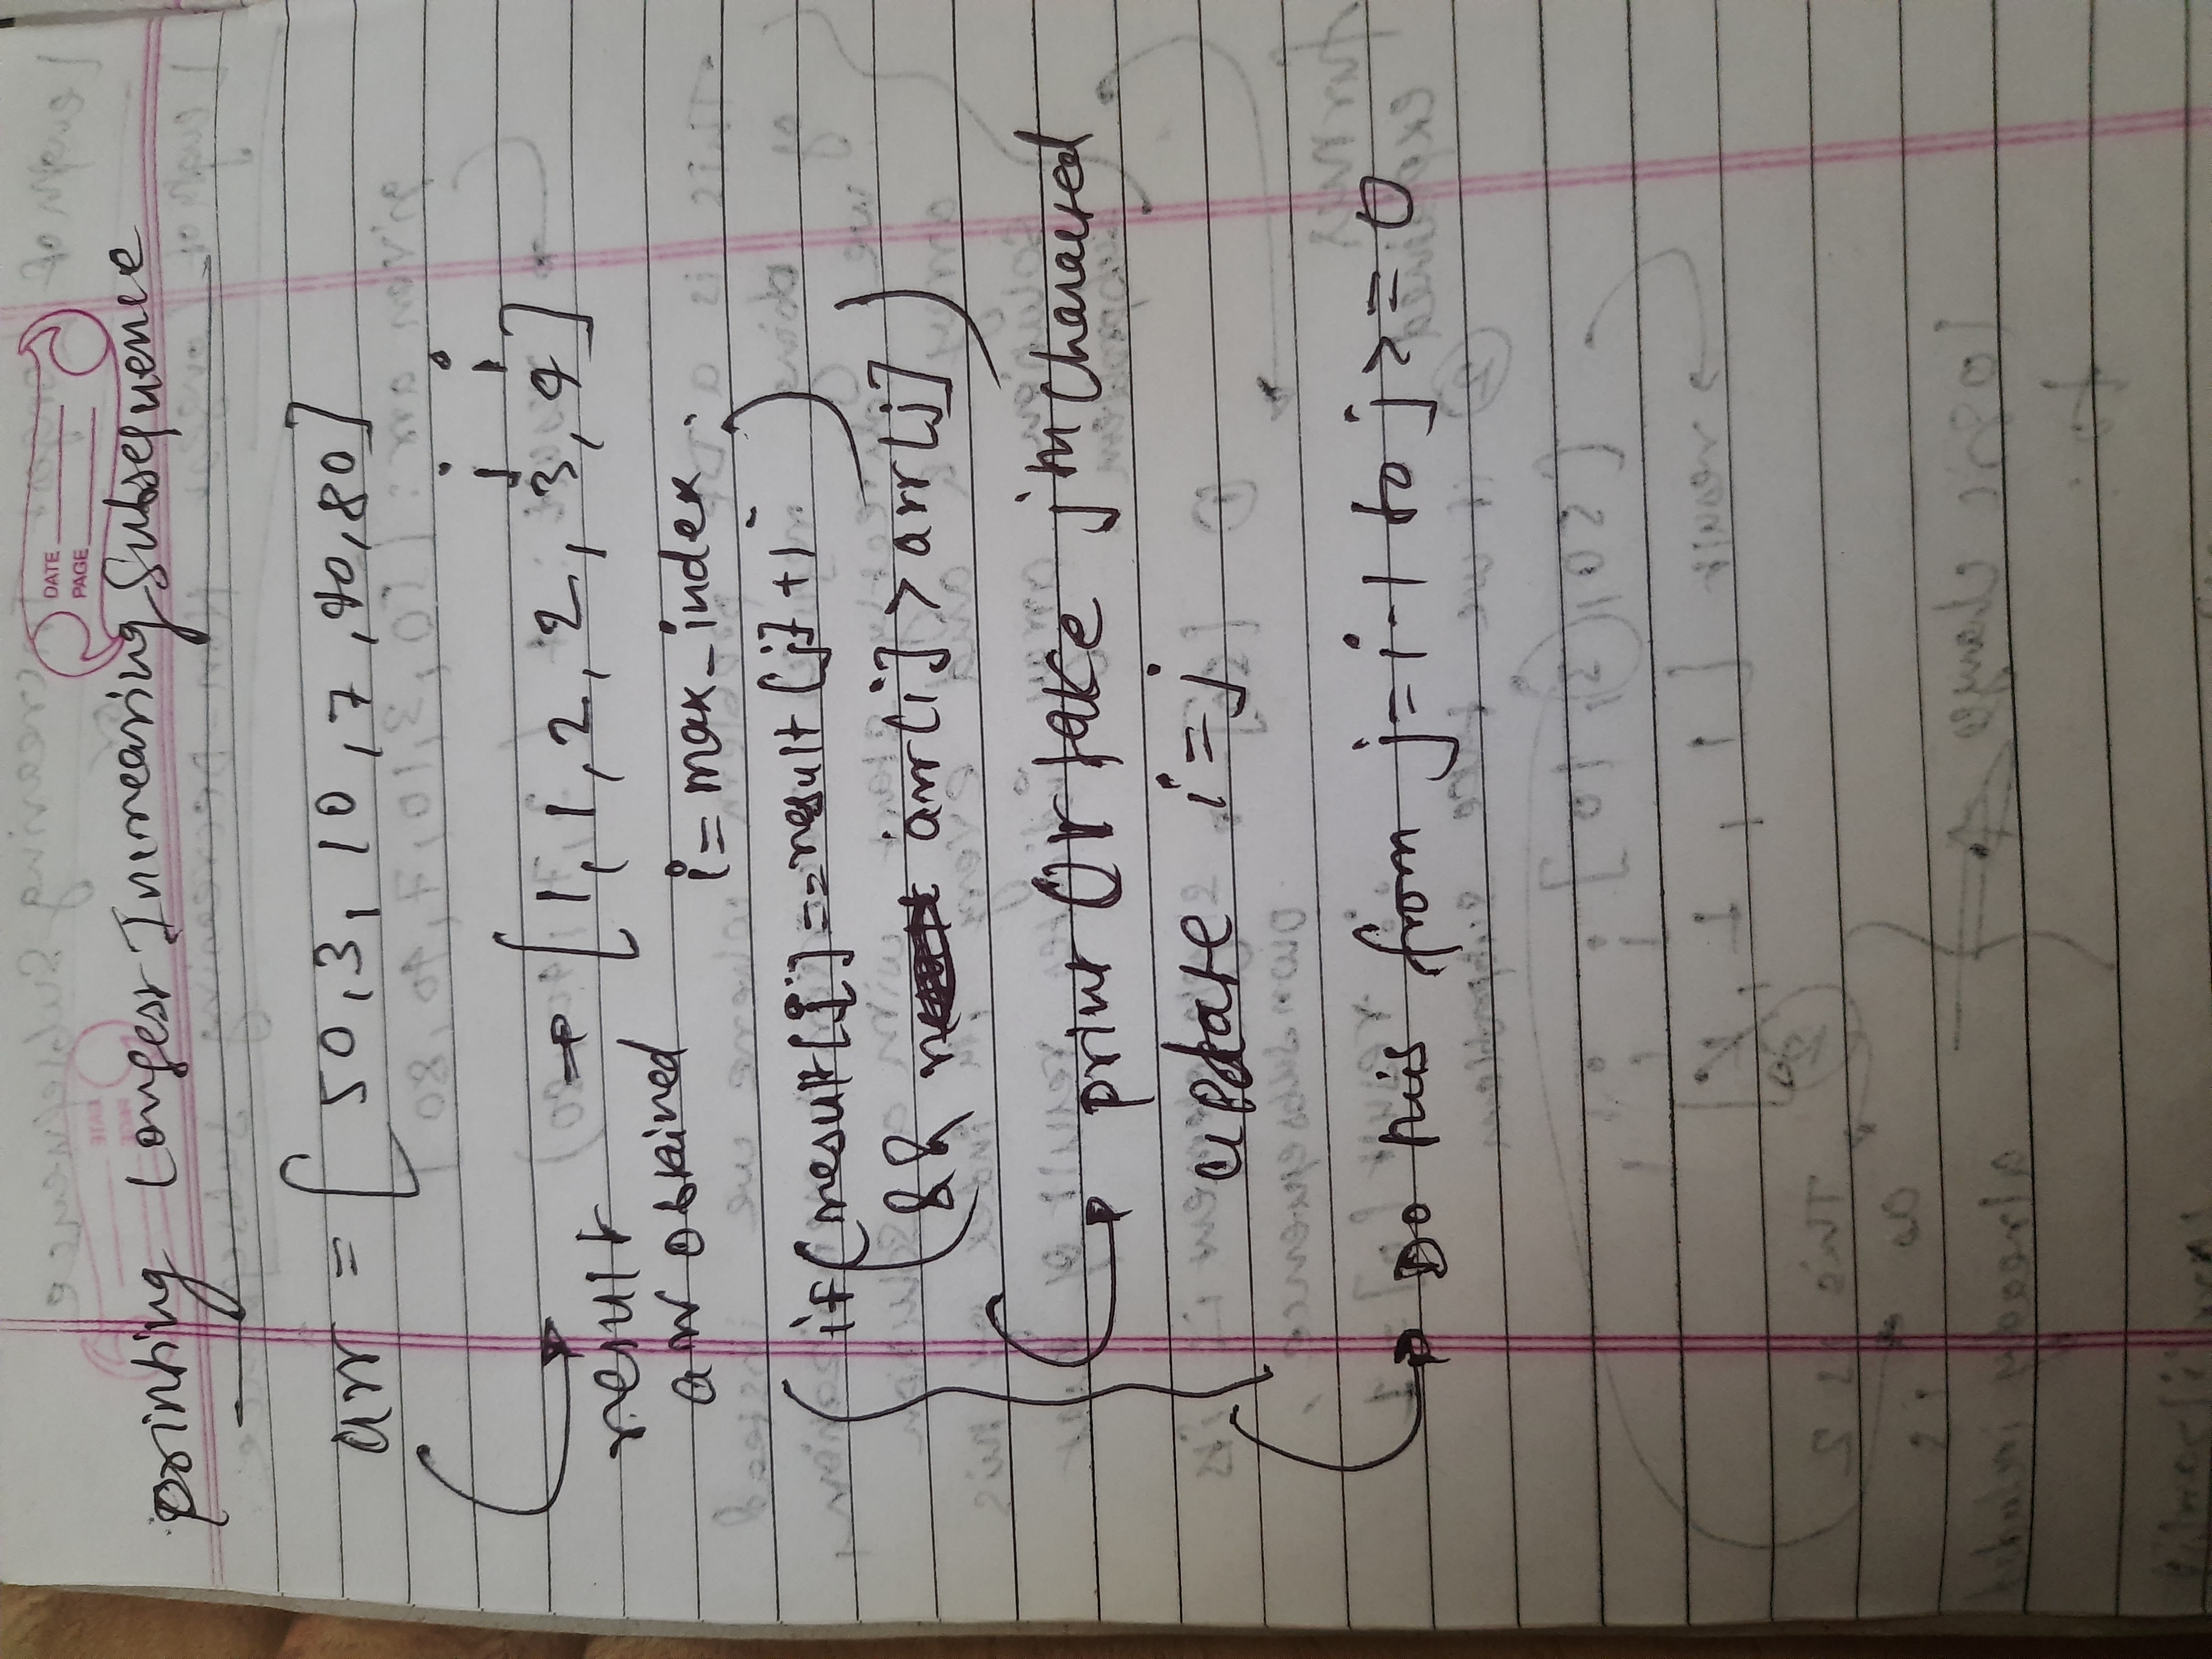 DATE
PAGE
printing Longest Increasing Subsequence
arr = [50, 3, 10, 7, 40, 80]
j i
result → [1, 1, 2, 2, 3, 4]
arr obtained
i = max_index.
if (result[i] == result[j] + 1
&& arr[i] > arr[j])
print Or take jth Character
update i = j
Do this from j = i-1 to j >= 0